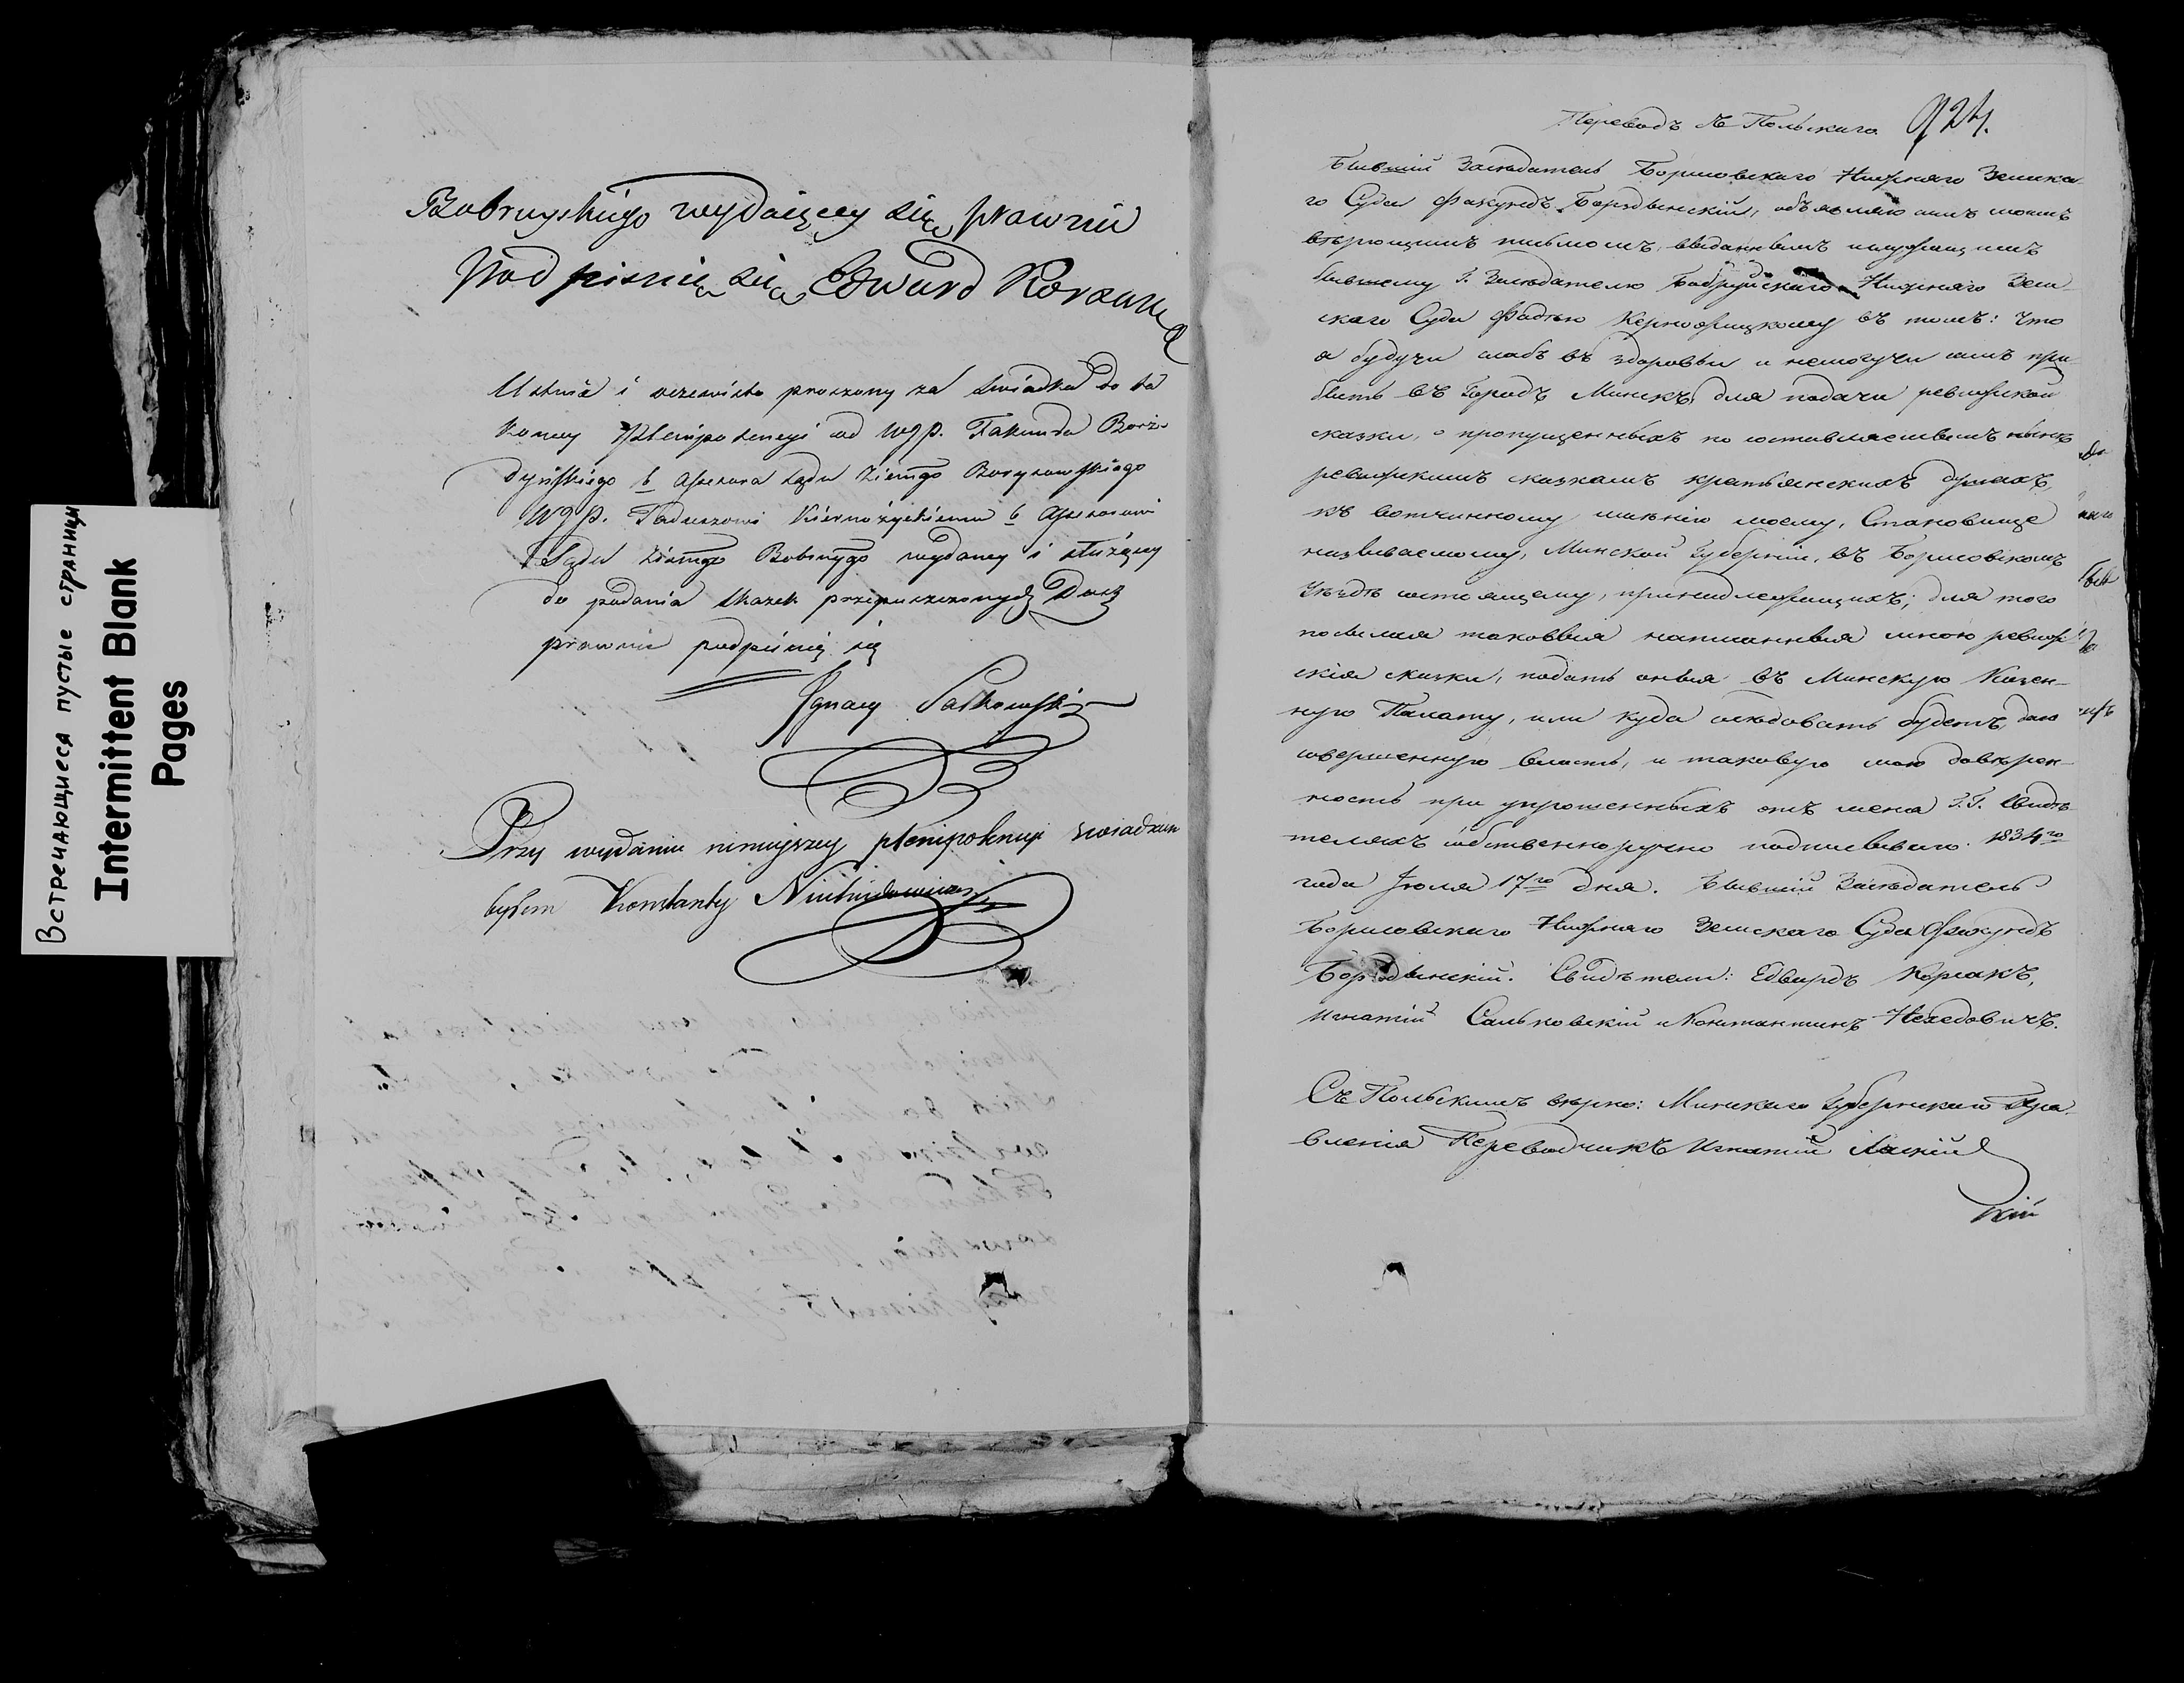 Встречающиеся пустые страницы
Intermittent Blank
Pages
Bobruyskiego wydaiącey się prawnie
Podpisuię się Edward Korsak
Ustnie i oczewisto proszony za świadka do ta
kowey Plenipotencyi od WJP. Fakunda Borzo
dyńskiego b Assesora Sądu Ziemgo Borysowskiego
WJP. Tadeuszowi Kiernożyckiemu b Assesorowi
Sądu Ziemgo Bobruygo wydaney i służącey
do podania skazek przepuszczonych Dusz
prawnie podpisuię się
Ignacy Salkowski
Przy wydaniu ninieyszey plenipotencyi świadkiem
byłem Konstanty
Переводъ съ Польскаго 924.
Бывшій Засѣдатель Борисовскаго Нижняго Земска-
го Суда Факундъ Бородзынскій, объявляю симъ моимъ
вѣрющимъ письмомъ, выданнымъ
бывшему Г. Засѣдателю Бобруйскаго Нижняго Зем-
скаго Суда Фадѣю Керножицкому въ томъ: Что
я будучи слабъ въ здоровьи и немогучи самъ при-
быть въ Городъ Минскъ, для подачи ревижской
сказки, о пропущенныхъ по составляемымъ нынѣ
ревижскимъ сказкамъ крестьянскихъ душахъ,
къ вотчинному имѣнію моему, Становище
называемому, Минской Губерніи, въ Борисовскомъ
Уѣздѣ состоящему, принадлежащихъ; для того
посылая таковыя написанныя мною ревиж
скія сказки, подать оныя въ Минскую Казен-
ную Палату, или куда слѣдовать будетъ, даю
совершенную власть, и таковую мою довѣрен-
ность при упрошенныхъ отъ меня Г.Г. Свидѣ-
теляхъ собственноручно подписываю. 1834го
года Іюля 17го дня. Бывшій Засѣдатель
Борисовскаго Нижняго Земскаго Суда Факундъ
Бородзынскій. Свидѣтели: Едвардъ Корсакъ,
Игнатій Сальковскій и Константинъ Нехедовичъ.
Съ Польскимъ вѣрно: Минскаго Губернскаго Пра-
вленія Переводчикъ Игнатій
кій